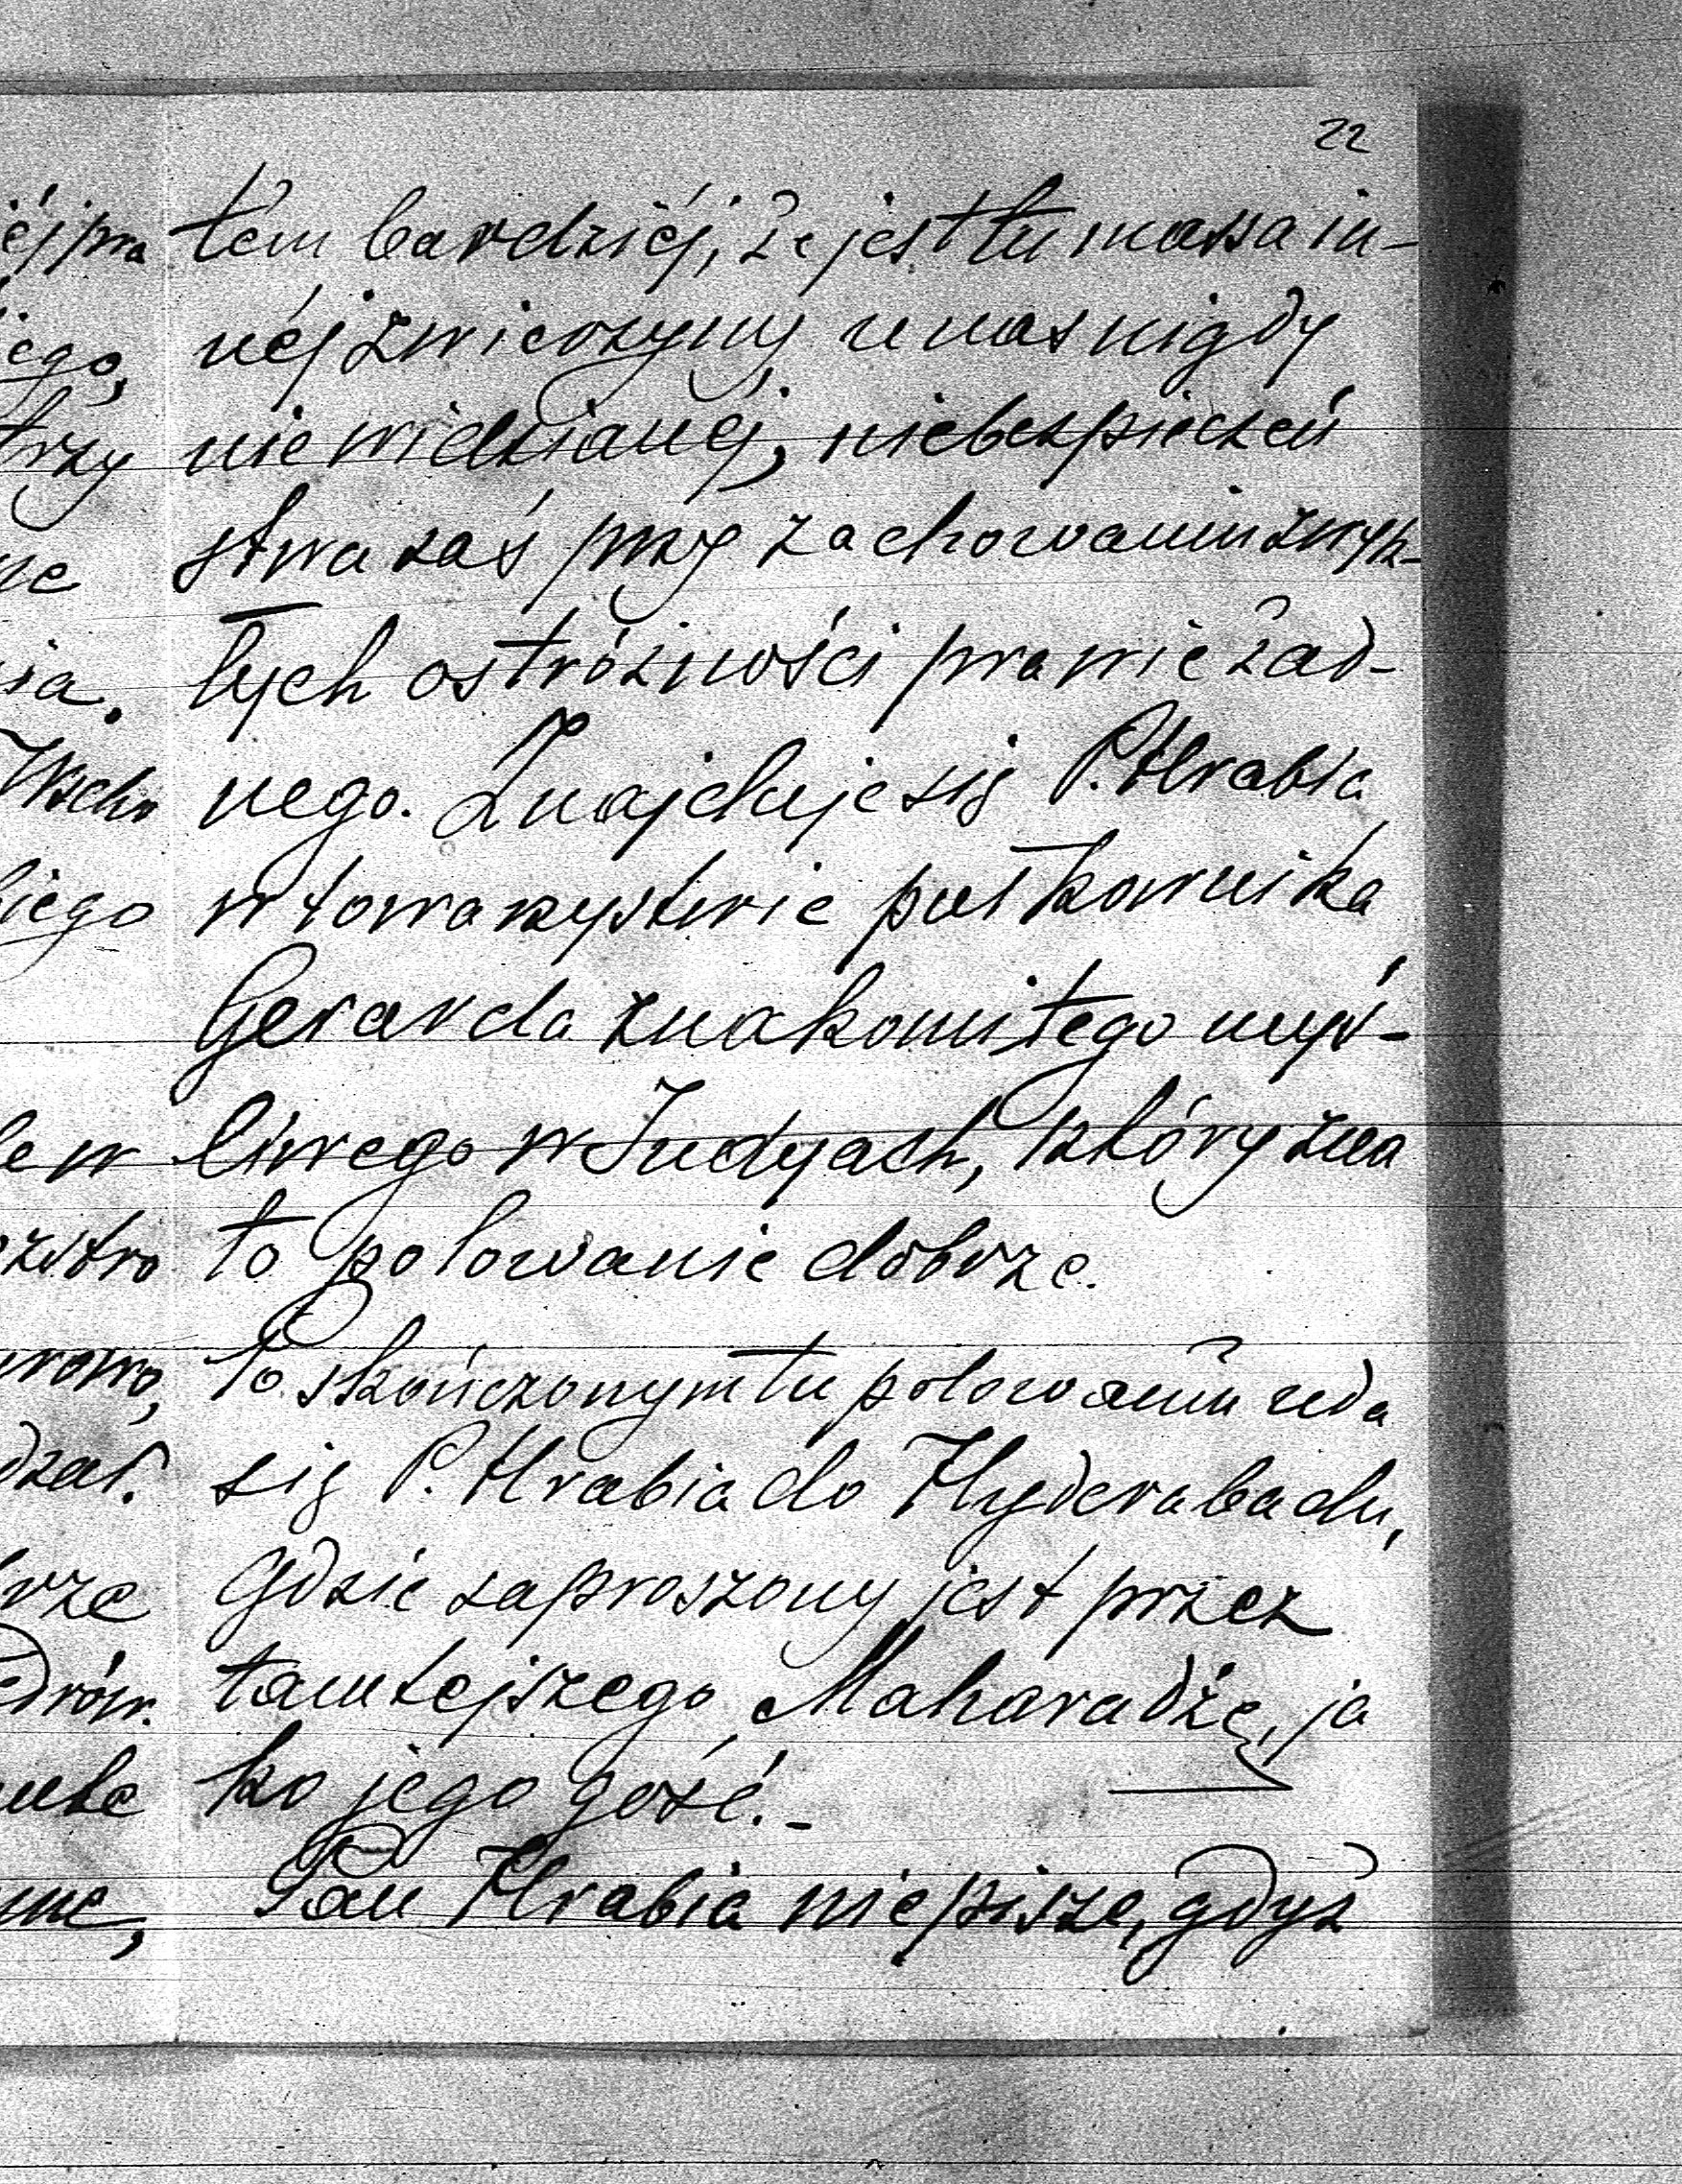 22
tém bardziéj, że jest tu massa in-
néj zwierzyny u nas nigdy
nie widzianéj, niebezpieczeń
stwa zaś przy zachowaniu zwyk-
łych ostrózności prawie żad-
nego. Znajduje się P. Hrabia
w towarzystwie pułkownika
Gerarda znakomitego myś-
liwego w Indyach, który zna
to polowanie dobrze.
Po skończonym tu polowaniu uda
się P. Hrabia do Hyderabadu,
gdzie zaproszony jest przez
tamtejszego Maharadżę, ja
ko jego gość.-
Pan Hrabia nie pisze, gdyż